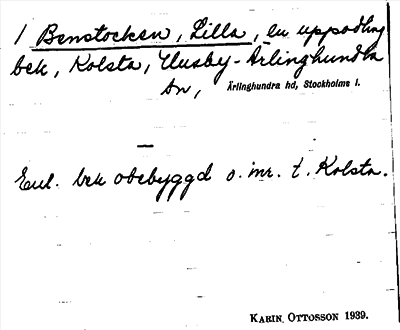 1 Benstocken, Lilla, en uppodling
bek, Kolsta, Husby-Ärlinghundra
sn, Ärlinghundra hd, Stockholms l.
—
Enl. bek obebyggd o. inr. t. Kolsta.
KARIN OTTOSSON 1939.